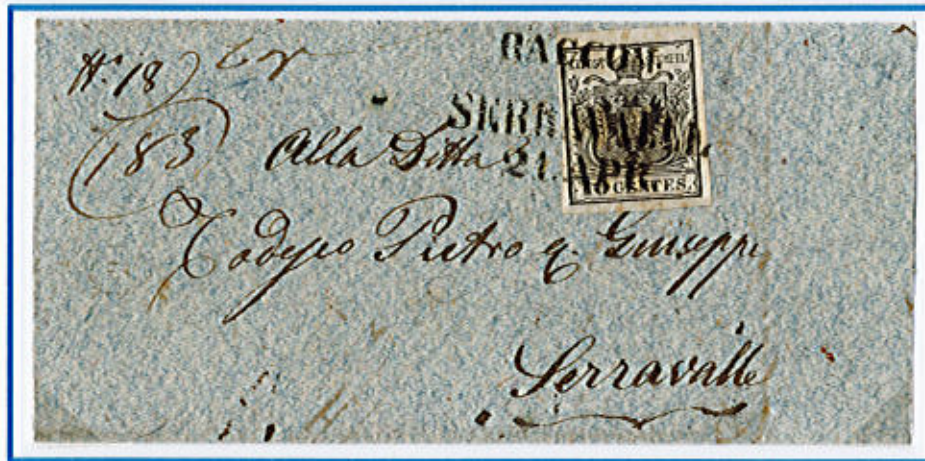 N. 18
183
RACCOM.
SERRAVALL.
21. APR
10 CENTES.
Alla Ditta
Pietro q. Giuseppe
Serravalle